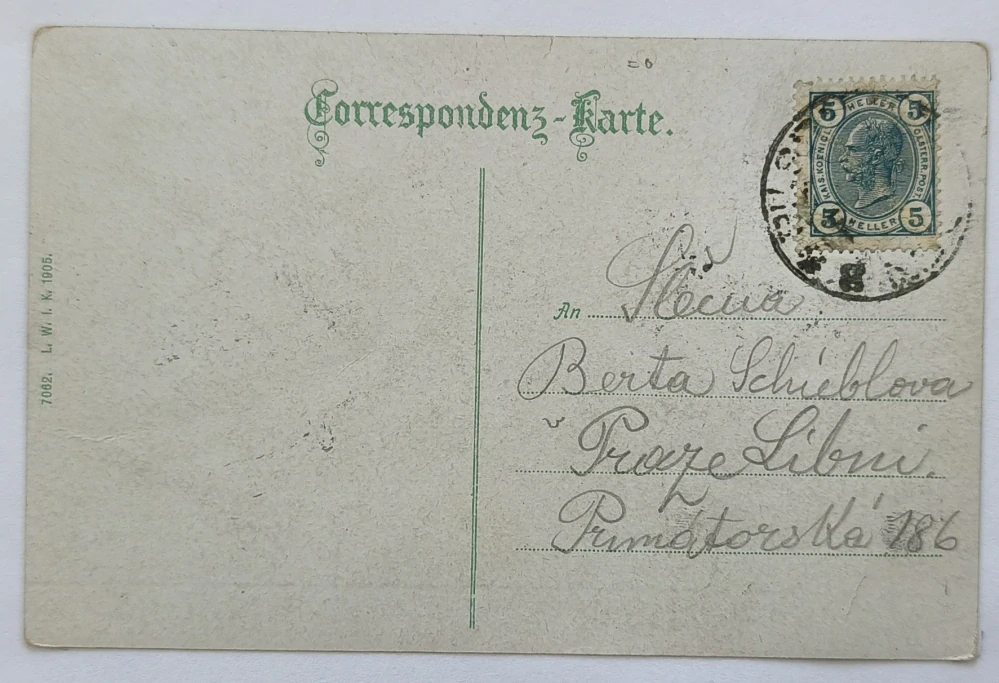 Correspondenz-Karte.
5 HELLER 5
KAIS. KOENIGL. OESTERR. POST
5 HELLER 5
7062. L. W. I. K. 1905.
An Slečna
Berta Schieblova
v Praze Libni.
Primátorská 186